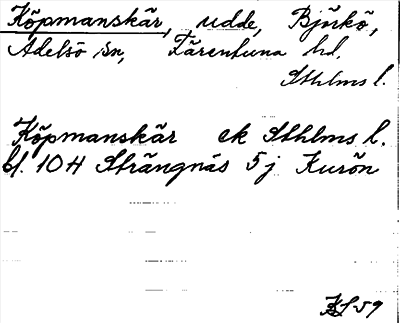 Köpmanskär, udde, Björkö,
Adelsö sn, Färentuna hd.
Sthlms l.
Köpmanskär ek Sthlms l.
bl. 10 H Strängnäs 5j Kurön
59